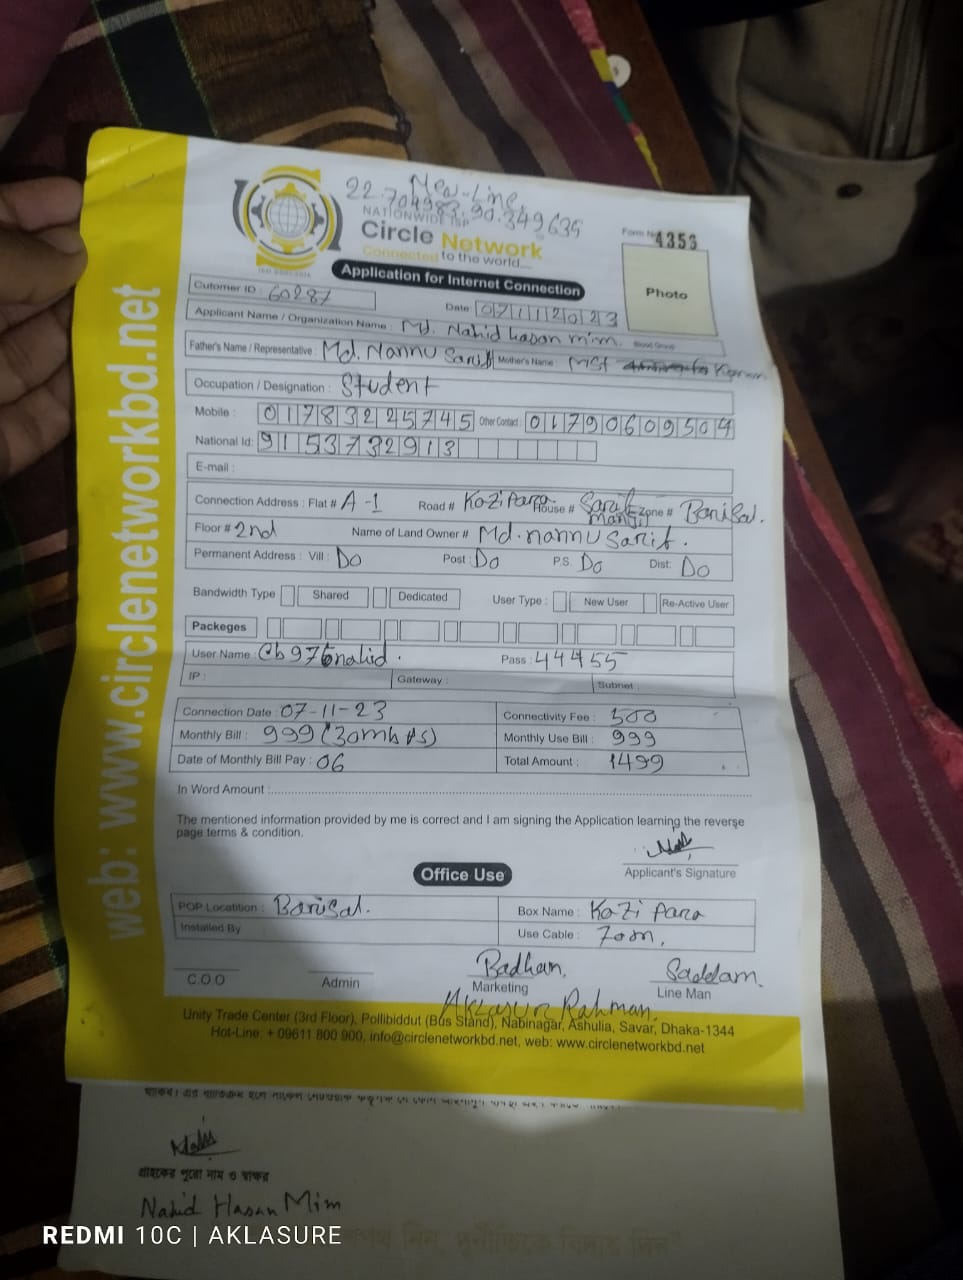 New-Line,
22.704983, 90.349635
NATIONWIDE ISP
Circle Network
Connected to the world...
Form No 4353
Photo
Application for Internet Connection
Cutomer ID : 60287
Date : 07112023
Applicant Name / Organization Name : Md. Nahid hasan mim.
Blood Group
Father's Name / Representative : Md. Nannu Sarif Mother's Name : MST
Occupation / Designation : Student
Mobile : 01783225745 Other Contact : 01790609504
National Id: 9153732913
E-mail :
Connection Address : Flat # A-1 Road # Kazi Para House # Sarif Manjil Zone # Barisal.
Floor # 2nd Name of Land Owner # Md. nannu sarif.
Permanent Address : Vill : Do Post : Do P.S. Do Dist: Do
Bandwidth Type Shared Dedicated User Type : New User Re-Active User
Packeges
User Name : Cb976nahid. Pass : 44455
IP : Gateway : Subnet :
Connection Date : 07-11-23 Connectivity Fee : 500
Monthly Bill : 999 (30mbps) Monthly Use Bill : 999
Date of Monthly Bill Pay : 06 Total Amount : 1499
In Word Amount :
The mentioned information provided by me is correct and I am signing the Application learning the reverse
page terms & condition.
Applicant's Signature
Office Use
POP Locatition : Barisal. Box Name : Kazi para
Installed By Use Cable : 70m,
Badhan, Saddam.
C.O.O Admin Marketing Line Man
Aklasur Rahman.
Unity Trade Center (3rd Floor), Pollibiddut (Bus Stand), Nabinagar, Ashulia, Savar, Dhaka-1344
Hot-Line: + 09611 800 900, info@circlenetworkbd.net, web: www.circlenetworkbd.net
web: www.circlenetworkbd.net
গ্রাহকের পুরো নাম ও স্বাক্ষর
Nahid Hasan Mim
REDMI 10C | AKLASURE